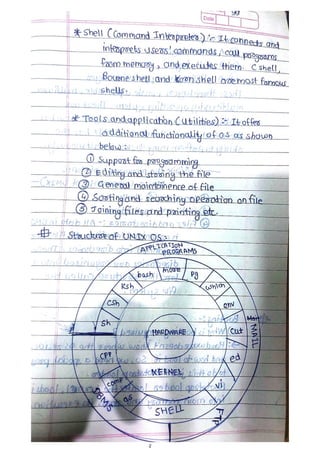 Date
* Shell (Command Interpreter) :- It connects and
interprets users' commands, call programs
from memory, and executes them. C shell,
Bourne shell and Korn shell are most famous
shells.
* Tools and application (Utilities) :- It offer
additional functionality of OS as shown
below :-
① Support for programming
② Editing and storing the file
③ General maintenence of file
④ Sorting and searching operation on file
⑤ Joining files and printing etc
Structure of UNIX OS :-
APPLICATION
PROGRAMS
more
pg
bash
which
Ksh
env
Csh
Sh
HARDWARE
Cut
MAIL
CPP
KERNEL
ed
comp
vi
SHELL
FTP
2